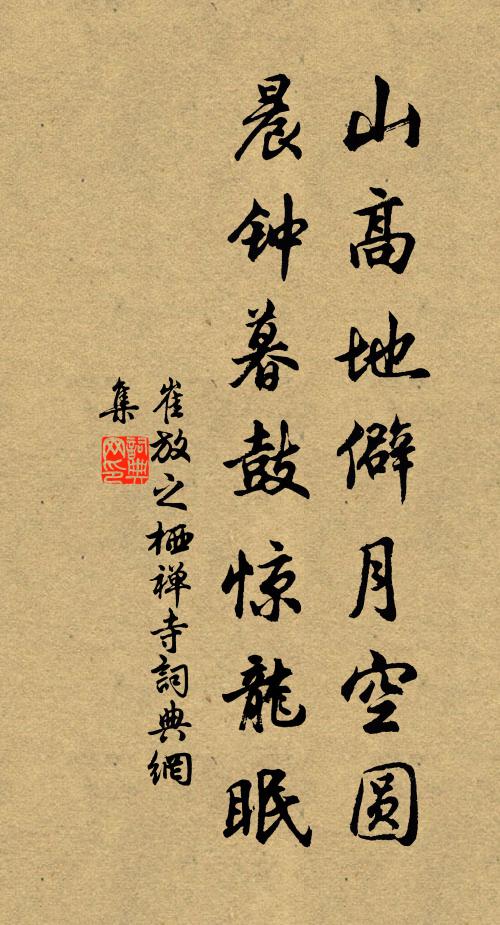 山高地僻月空圆
晨钟暮鼓惊龍眠
崔放之栖禅寺詞典網
集
詞典网印